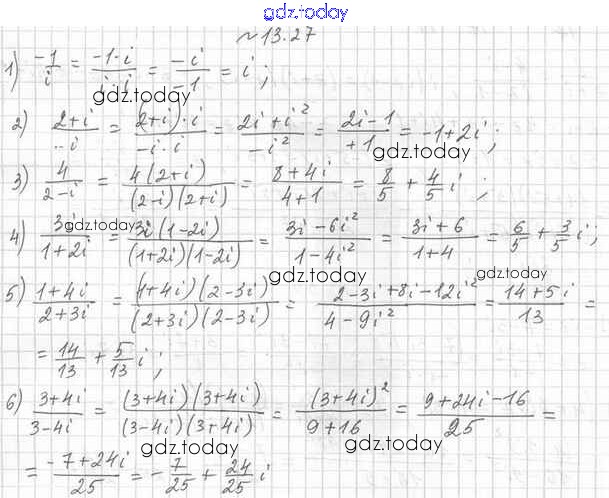 gdz.today
~ 13.27
1) -1/i = -1·i/i·i = -i/-1 = i ;
gdz.today
2) 2+i/-i = (2+i)·i/-i·i = 2i+i²/-i² = 2i-1/+1 = -1+2i ;
gdz.today
3) 4/2-i = 4(2+i)/(2-i)(2+i) = 8+4i/4+1 = 8/5 + 4/5 i ;
gdz.today
4) 3i/1+2i = 3i(1-2i)/(1+2i)(1-2i) = 3i-6i²/1-4i² = 3i+6/1+4 = 6/5 + 3/5 i ;
gdz.today gdz.today
5) 1+4i/2+3i = (1+4i)(2-3i)/(2+3i)(2-3i) = 2-3i+8i-12i²/4-9i² = 14+5i/13 =
= 14/13 + 5/13 i ;
6) 3+4i/3-4i = (3+4i)(3+4i)/(3-4i)(3+4i) = (3+4i)²/9+16 = 9+24i-16/25 =
gdz.today gdz.today
= -7+24i/25 = -7/25 + 24/25 i